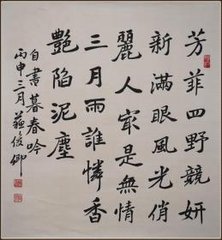 芳菲四野競妍
新滿眼風光俏
麗人冣是無情
三月雨誰憐香
艷陷泥塵
自書暮春吟
丙申三月蘇俊卿